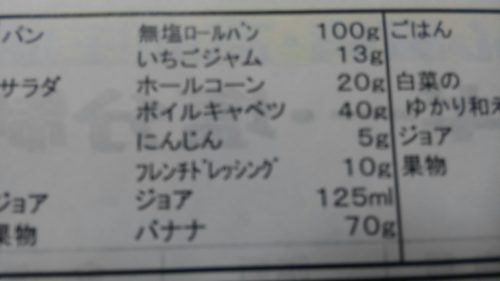 パン 無塩ﾛｰﾙﾊﾟﾝ 100g ごはん
いちごジャム 13g
サラダ ホールコーン 20g 白菜の
ボイルキャベツ 40g ゆかり和え
にんじん 5g ジョア
ﾌﾚﾝﾁﾄﾞﾚｯｼﾝｸﾞ 10g 果物
ジョア ジョア 125ml
果物 バナナ 70g